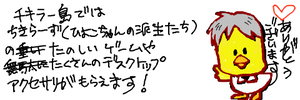 チキラー島では
ちきらーず(ひよこちゃんの派生たち)
のたのしいゲームや
たくさんのデスクトップ
アクセサリがもらえます!
ありがとう
ございます